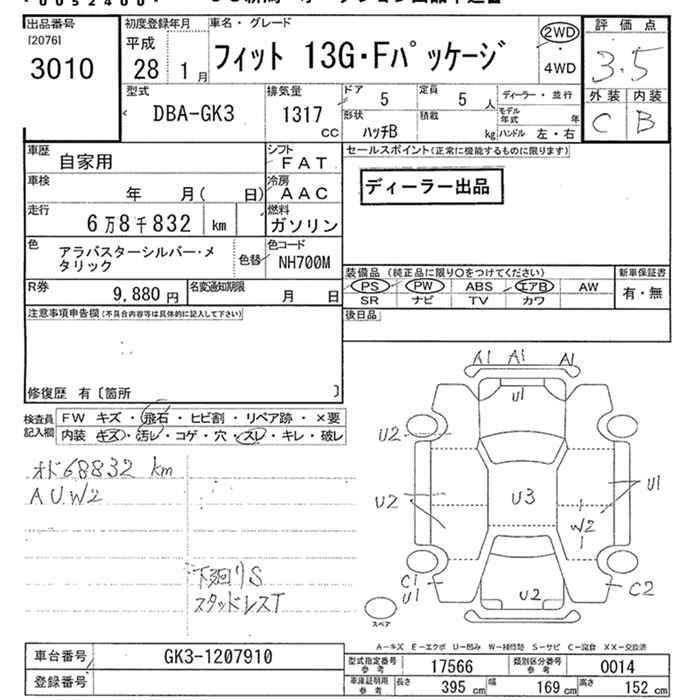 0052400
出品番号
[2076]
3010
初度登録年月
平成
28 1 月
車名・グレード
フィット 13G・Fパッケージ
2WD
4WD
評価点
3.5
外装 内装
C B
型式
DBA-GK3
排気量
1317
CC
ドア
5
定員
5 人
形状
ハッチB
積載
kg
ディーラー・並行
モデル年式 年
ハンドル 左・右
車歴
自家用
シフト
FAT
車検
年 月( 日)
冷房
AAC
走行
6万8千832 km
燃料
ガソリン
色
アラバスターシルバー・メ
タリック
色替
色コード
NH700M
R券
9,880 円
名変通知期限
月 日
セールスポイント(正常に機能するものに限ります)
ディーラー出品
装備品 (純正品に限り○をつけてください)
PS PW ABS エアB AW
SR ナビ TV カワ
新車保証書
有・無
後日品
注意事項申告欄(不具合内容等は具体的に記入して下さい)
修復歴 有〔箇所 〕
検査員
記入欄
FW キズ・飛石・ヒビ割・リペア跡・×要
内装 キズ・汚レ・コゲ・穴・スレ・キレ・破レ
オド68832 km
AUW2
下廻りS
スタッドレスT
A1 A1 A1
U1
U2
U2
U3
U1
W2
C1
U1
U2
C2
スペア
A-キズ E-エクボ U-凹み W-補修跡 S-サビ C-腐食 XX-交換済
車台番号
GK3-1207910
登録番号
型式指定番号
参考
17566
類別区分番号
参考
0014
車庫証明用
参考
長さ
395 cm
幅
169 cm
高さ
152 cm